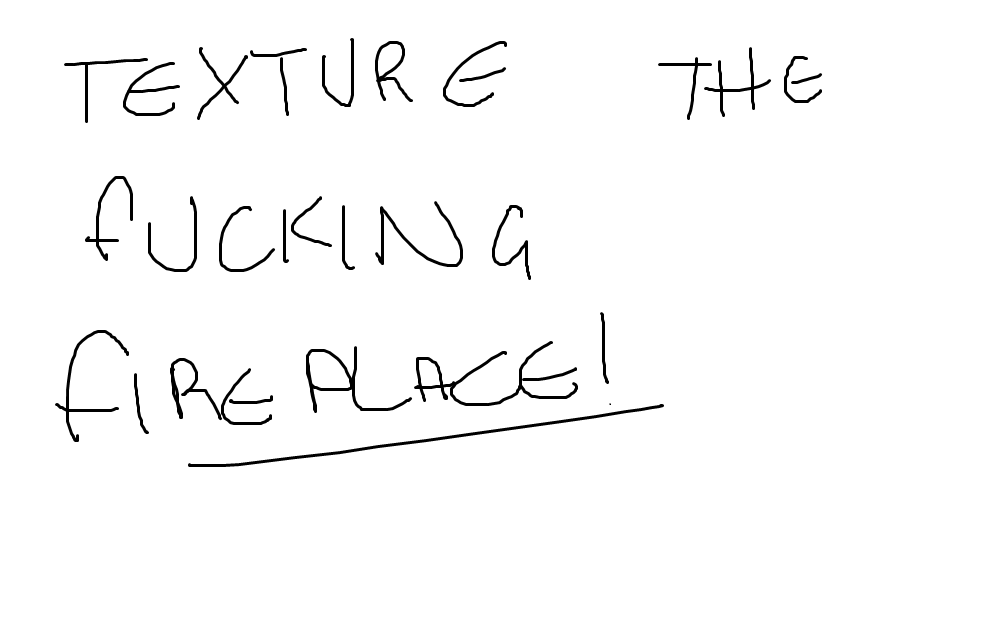 TEXTURE THE
fUCKING
fIREPLACE!